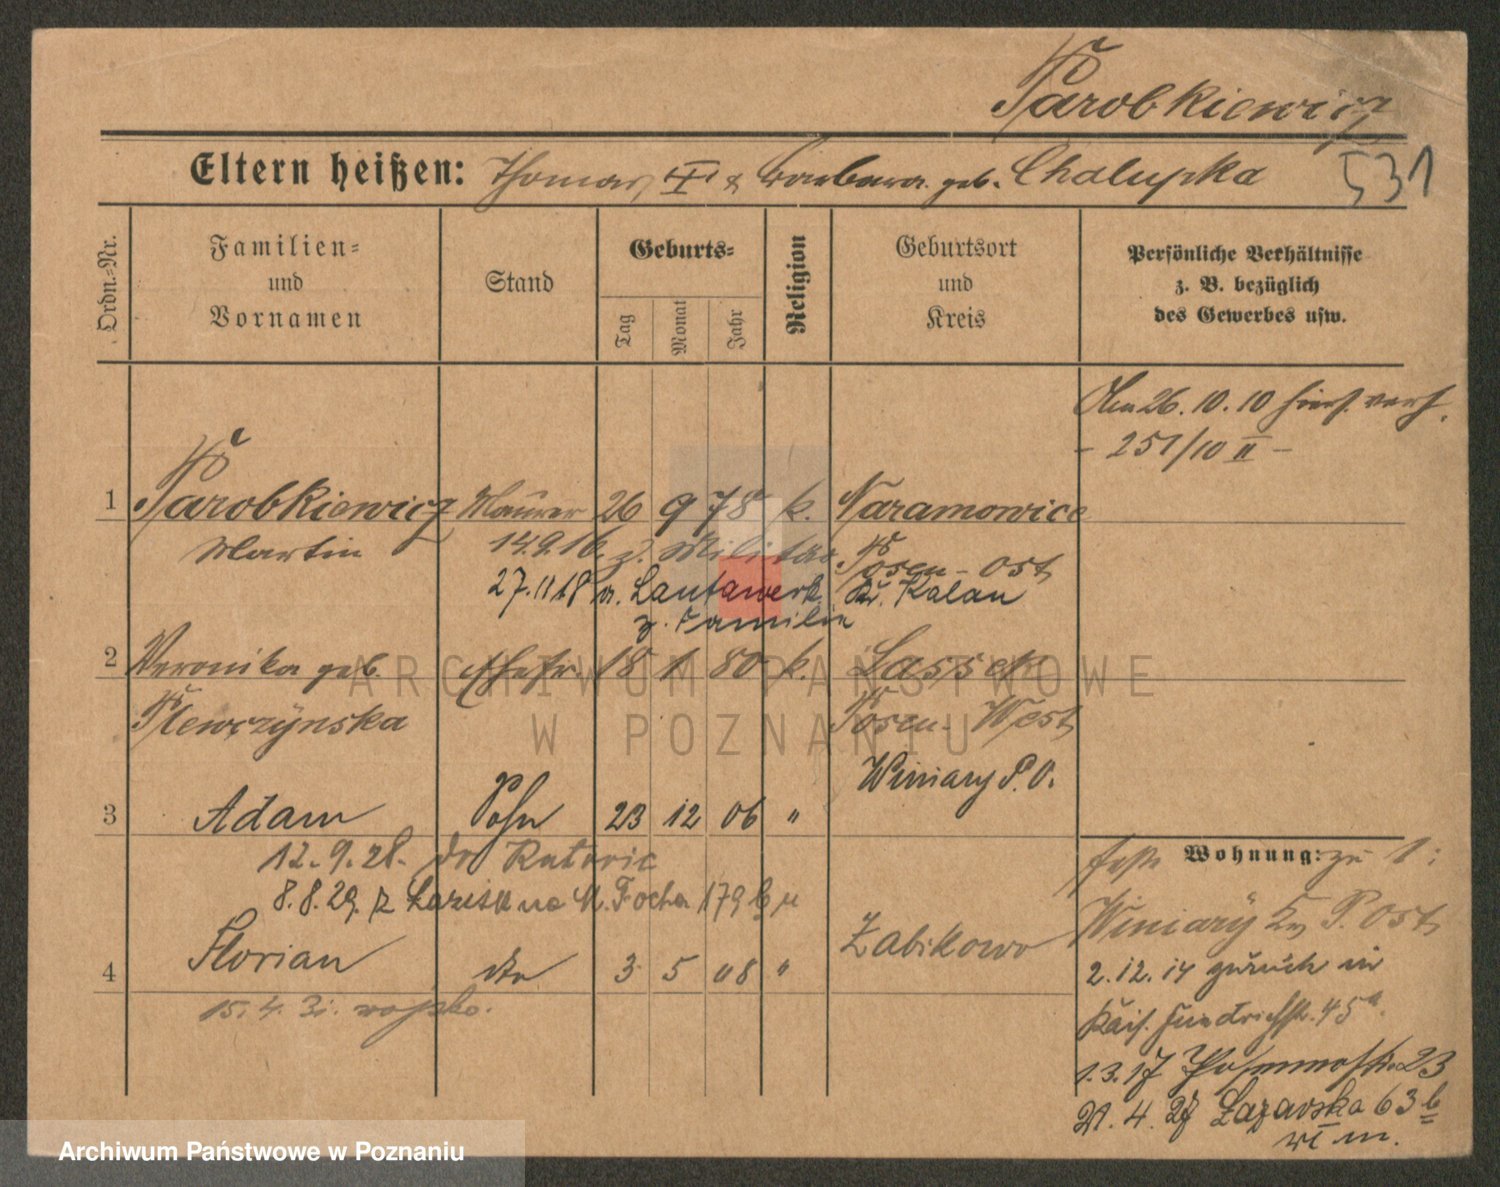 Parobkiewicz
Eltern heißen: Thomas, & Barbara geb. Chalupka 531
Ordn.-Nr.
Familien-
und
Vornamen
Stand
Geburts-
Tag
Monat
Jahr
Religion
Geburtsort
und
Kreis
Persönliche Verhältnisse
z. B. bezüglich
des Gewerbes usw.
26.10.10
- 251/10 II -
1 Parobkiewicz Maurer 26 9 78 k. Naramowice
Martin 14.9.16. z. Militär Posen-Ost
27.11.18 n. Lautawerk Kr. Kalau
z. Familie
2 Veronika geb. Ehefr. 18 1 80 k. Lassek
Plewczynska Posen-West
Winiary P.O.
3 Adam Sohn 23 12 06 "
12.9.28. do
8.8.29. z M. Focha 179
4 Florian dto 3 5 08 " Zabikowo
15.4.31. wojsko.
Wohnung: zu 1:
Winiary P. Ost
2.12.14 zurück in
Kais. Friedrichstr. 45a.
1.3.17 23
21.4.27 Łazarska 63 b
ARCHIWUM PAŃSTWOWE
W POZNANIU
Archiwum Państwowe w Poznaniu